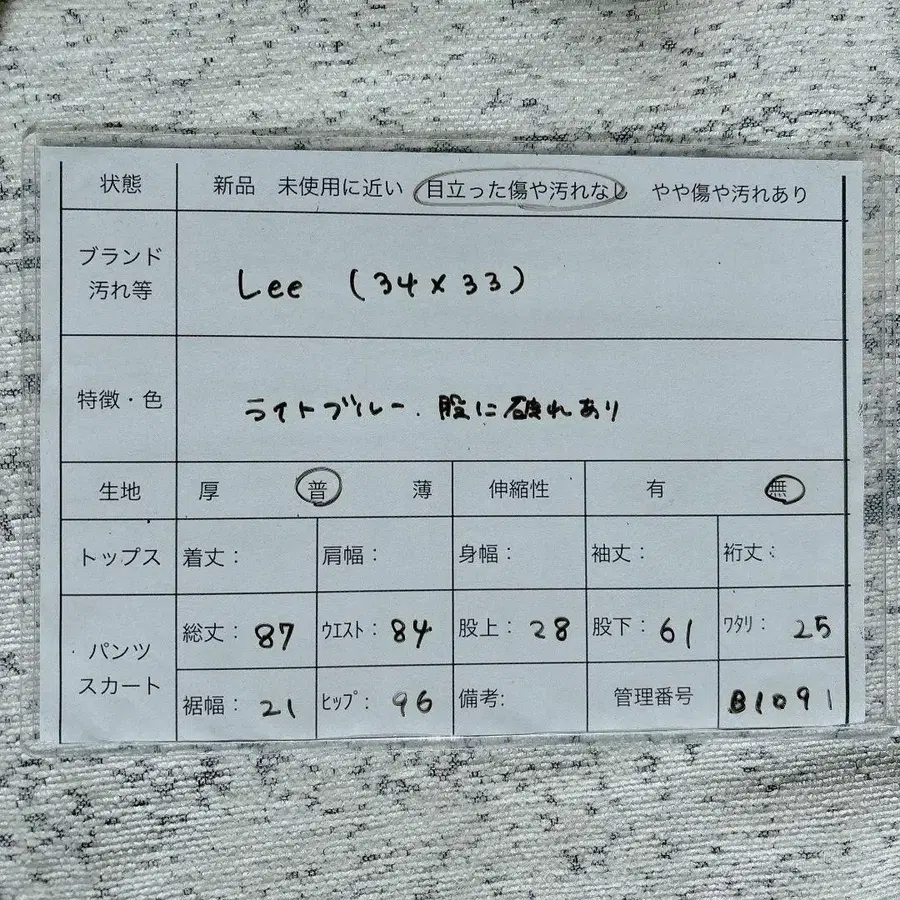 状態 新品 未使用に近い 目立った傷や汚れなし やや傷や汚れあり
ブランド
汚れ等
Lee (34×33)
特徴・色 ライトブルー.股に破れあり
生地 厚 普 薄 伸縮性 有 無
トップス 着丈: 肩幅: 身幅: 袖丈: 裄丈:
パンツ
スカート
総丈: 87 ウエスト: 84 股上: 28 股下: 61 ワタリ: 25
裾幅: 21 ヒップ: 96 備考: 管理番号 B1091